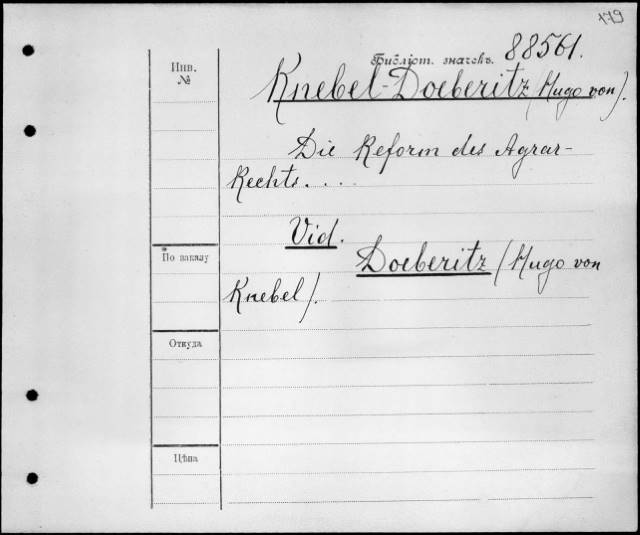 179
Библіот. значекъ. 88561.
Инв.
№
Knebel-Doeberitz (Hugo von).
Die Reform des Agrar-
Rechts. . . .
Vid.
По заказу
Doeberitz (Hugo von
Knebel).
Откуда
Цѣна